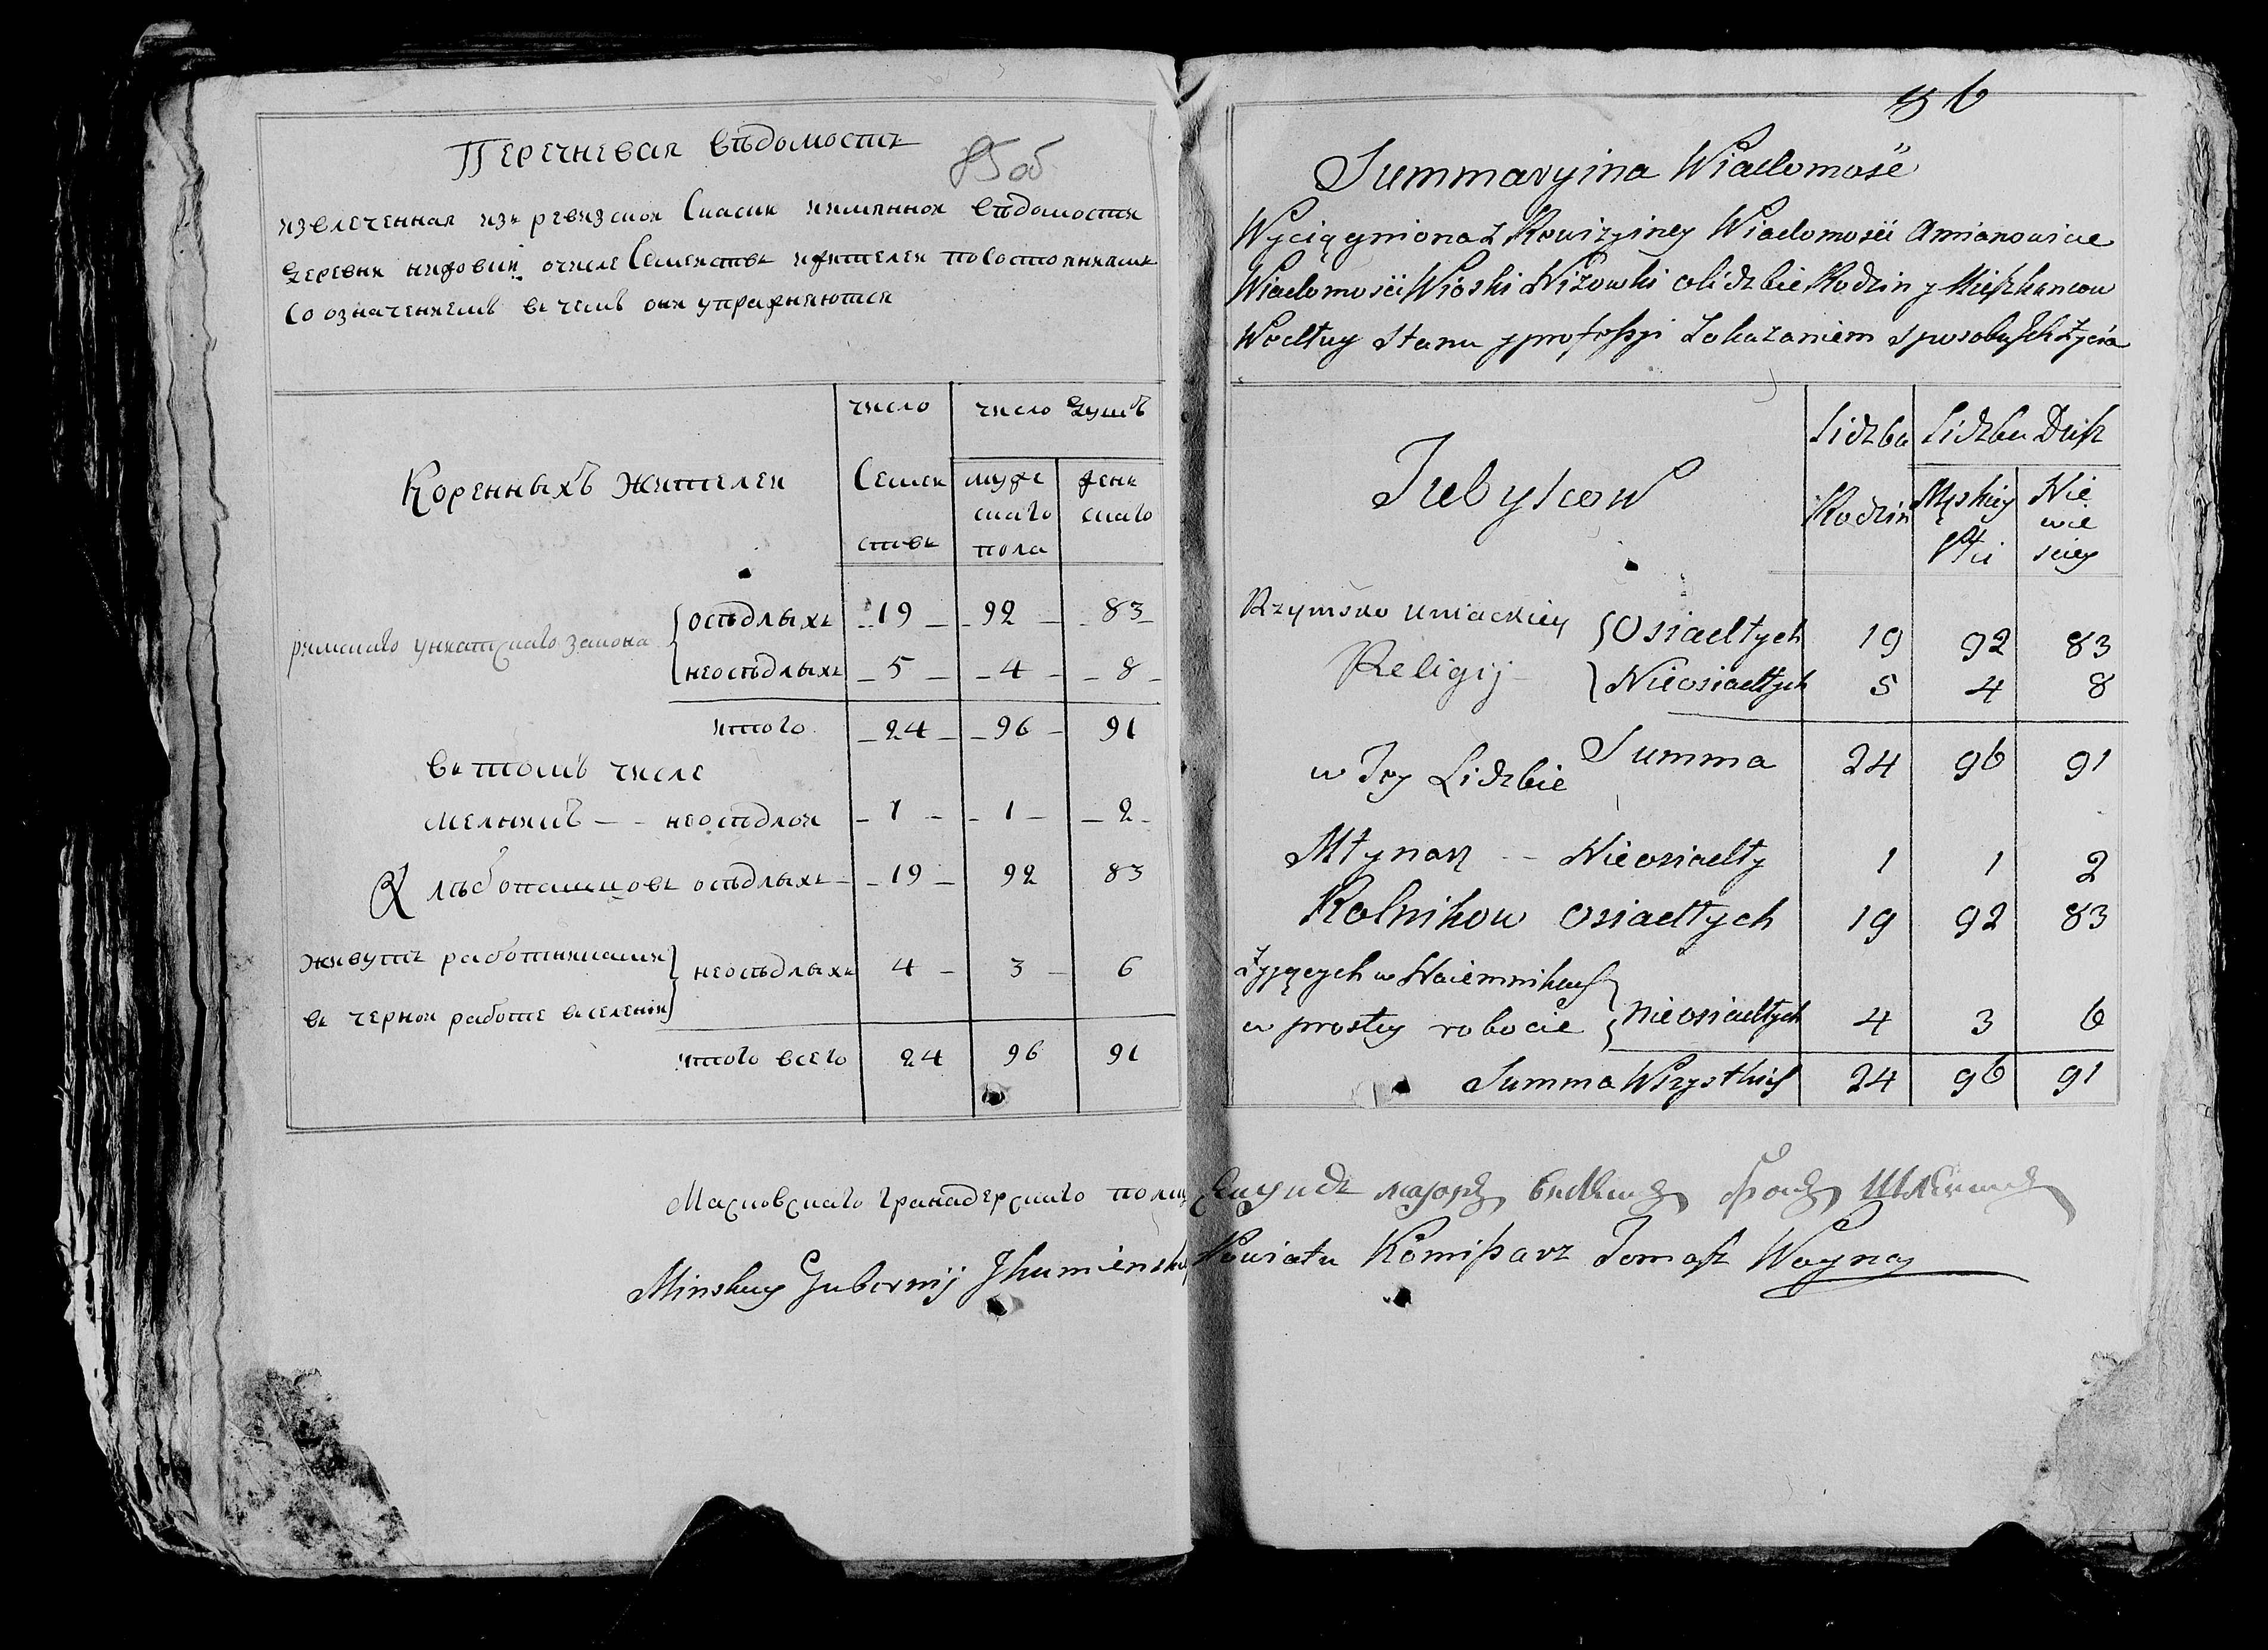 Перечневая вѣдомость
85 об
извлеченная изъ ревизской Сказки имянной вѣдомости
Деревни Нижовки о числе Семействъ и жителей по Состояниямъ
Со означениемъ въ чемъ они упражняются
Коренныхъ жителей
число Семействъ
число Душъ
мужескаго пола
женскаго
римскаго униатскаго закона
осѣдлыхъ 19 92 83
неосѣдлыхъ 5 4 8
итого 24 96 91
въ томъ числе
мельникъ - - неосѣдлой 1 1 2
хлѣбопашцовъ осѣдлыхъ 19 92 83
живутъ работниками
въ черной работе въ селении
неосѣдлыхъ 4 3 6
итого всего 24 96 91
Московскаго гранадерскаго полку
Minskiey Gubernij Jhumienskiego
86
Summaryina Wiadomość
Wyciągniona z Rewizyiney Wiadomości
Wiadomości Wioski Niżowki o lidzbie Rodzin y Mieszkancow
Wedłuy Stanu y professyi z okazaniem sposobu Ich Życia
Tubylcow
Lidzba Rodzin
Lidzba Dusz
Męskiey Płci
Niewieściey
Rzymsko Uniackiey
Religij
Osiadłych 19 92 83
Nieosiadłych 5 4 8
Summa 24 96 91
w Tey Lidzbie
Młynarz - - Nieosiadły 1 1 2
Rolnikow osiadłych 19 92 83
Żyjących w Naiemnikach
w prostey robocie
nieosiadłych 4 3 6
Summa Wszystkich 24 96 91
Секундъ маіоръ
Powiatu Komissarz Tomasz Woyna